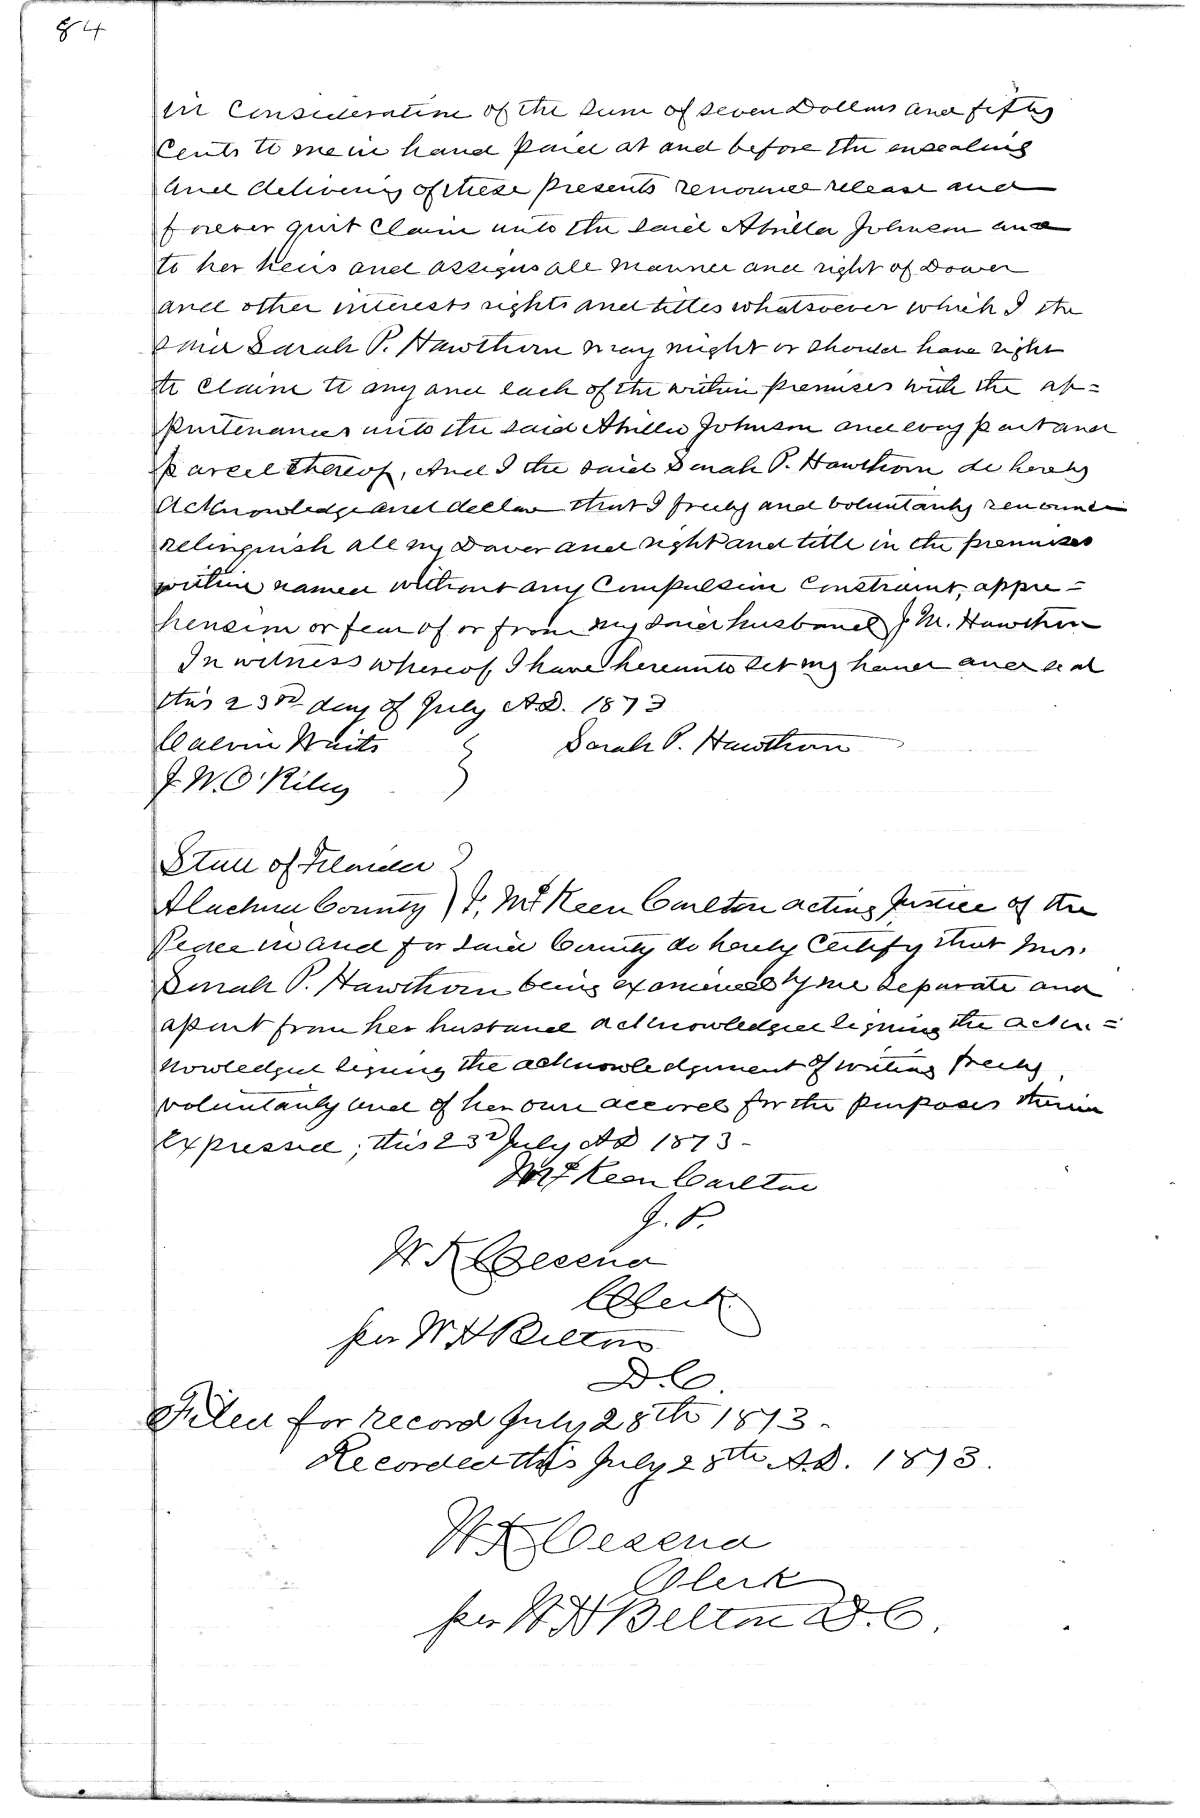 84
in consideration of the sum of seven Dollars and fifty
Cents to me in hand paid at and before the ensealing
and delivering of these presents renounce release and
forever quit Claim unto the said Abrilla Johnson and
to her heirs and assigns all manner and right of Dower
and other interests rights and titles whatsoever which I the
said Sarah P. Hawthorn may might or should have right
to claim to any and each of the within premises with the ap=
purtenances unto the said Abrilla Johnson and evry part and
parcel thereof, And I the said Sarah P. Hawthorn do hereby
Acknowledge and declare that I freely and voluntarily renounce
relinquish all my Dower and right and title in the premises
within named without any Compulsion Constraint, appre=
hension or fear of or from my said husband J. M. Hawthorn
In witness whereof I have hereunto set my hand and seal
this 23rd day of July A.D. 1873
Calvin Waits } Sarah P. Hawthorn
J. W. O'Riley
State of Florida }
Alachua County } I, McKeen Carlton acting Justice of the
Peace in and for said County do hereby Certify that Mrs.
Sarah P. Hawthorn being examined by me separate and
apart from her husband acknowledged signing the ackn=
nowledged signing the acknowledgement of writing freely
voluntarily and of her own accord for the purposes therein
expressed; this 23d July AD 1873-
McKeen Carlton
J. P.
W K Cessna
Clerk
per W H Belton
D. C.
Filed for record July 28th 1873.
Recorded this July 28th A.D. 1873.
W K Cessna
Clerk
per W H Belton D. C.